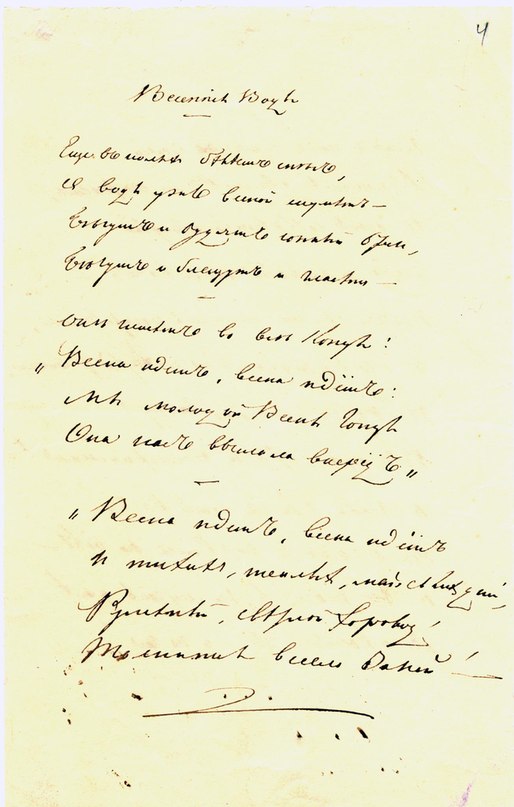 4
Весенніе Воды
Еще въ поляхъ бѣлѣетъ снѣгъ,
А воды ужъ весной шумятъ —
Бѣгутъ и будятъ сонный брегъ,
Бѣгутъ и блещутъ и гласятъ —
Они гласятъ во всѣ Концы:
„Весна идетъ, весна идётъ:
Мы молодой Весны Гонцы
Она насъ выслала впередъ„
„Весна идетъ, весна идётъ
И тихихъ, теплыхъ, майскихъ дней,
Румяный, свѣтлой хороводъ,
Толпится весело за ней! —